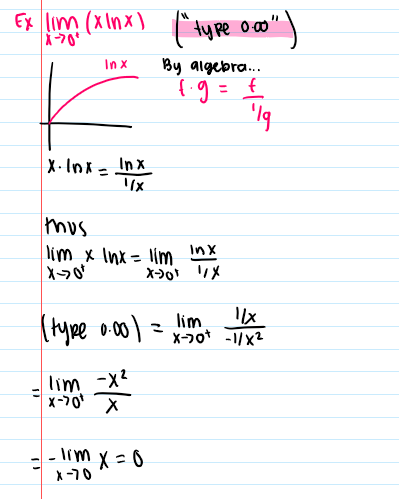 Ex lim x→0⁺ (x ln x) ("type 0·∞")
ln x
By algebra...
f·g = f / 1/g
x·ln x = ln x / 1/x
Thus
lim x→0⁺ x ln x = lim x→0⁺ ln x / 1/x
(type 0·∞) = lim x→0⁺ 1/x / -1/x²
= lim x→0⁺ -x² / x
= -lim x→0 x = 0